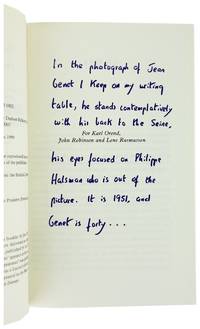 In the photograph of Jean
Genet I keep on my writing
table, he stands contemplatively
with his back to the Seine,
For Karl Orend,
John Robinson and Lene Rasmussen
his eyes focused on Philippe
Halsman who is out of the
picture. It is 1951, and
Genet is forty...